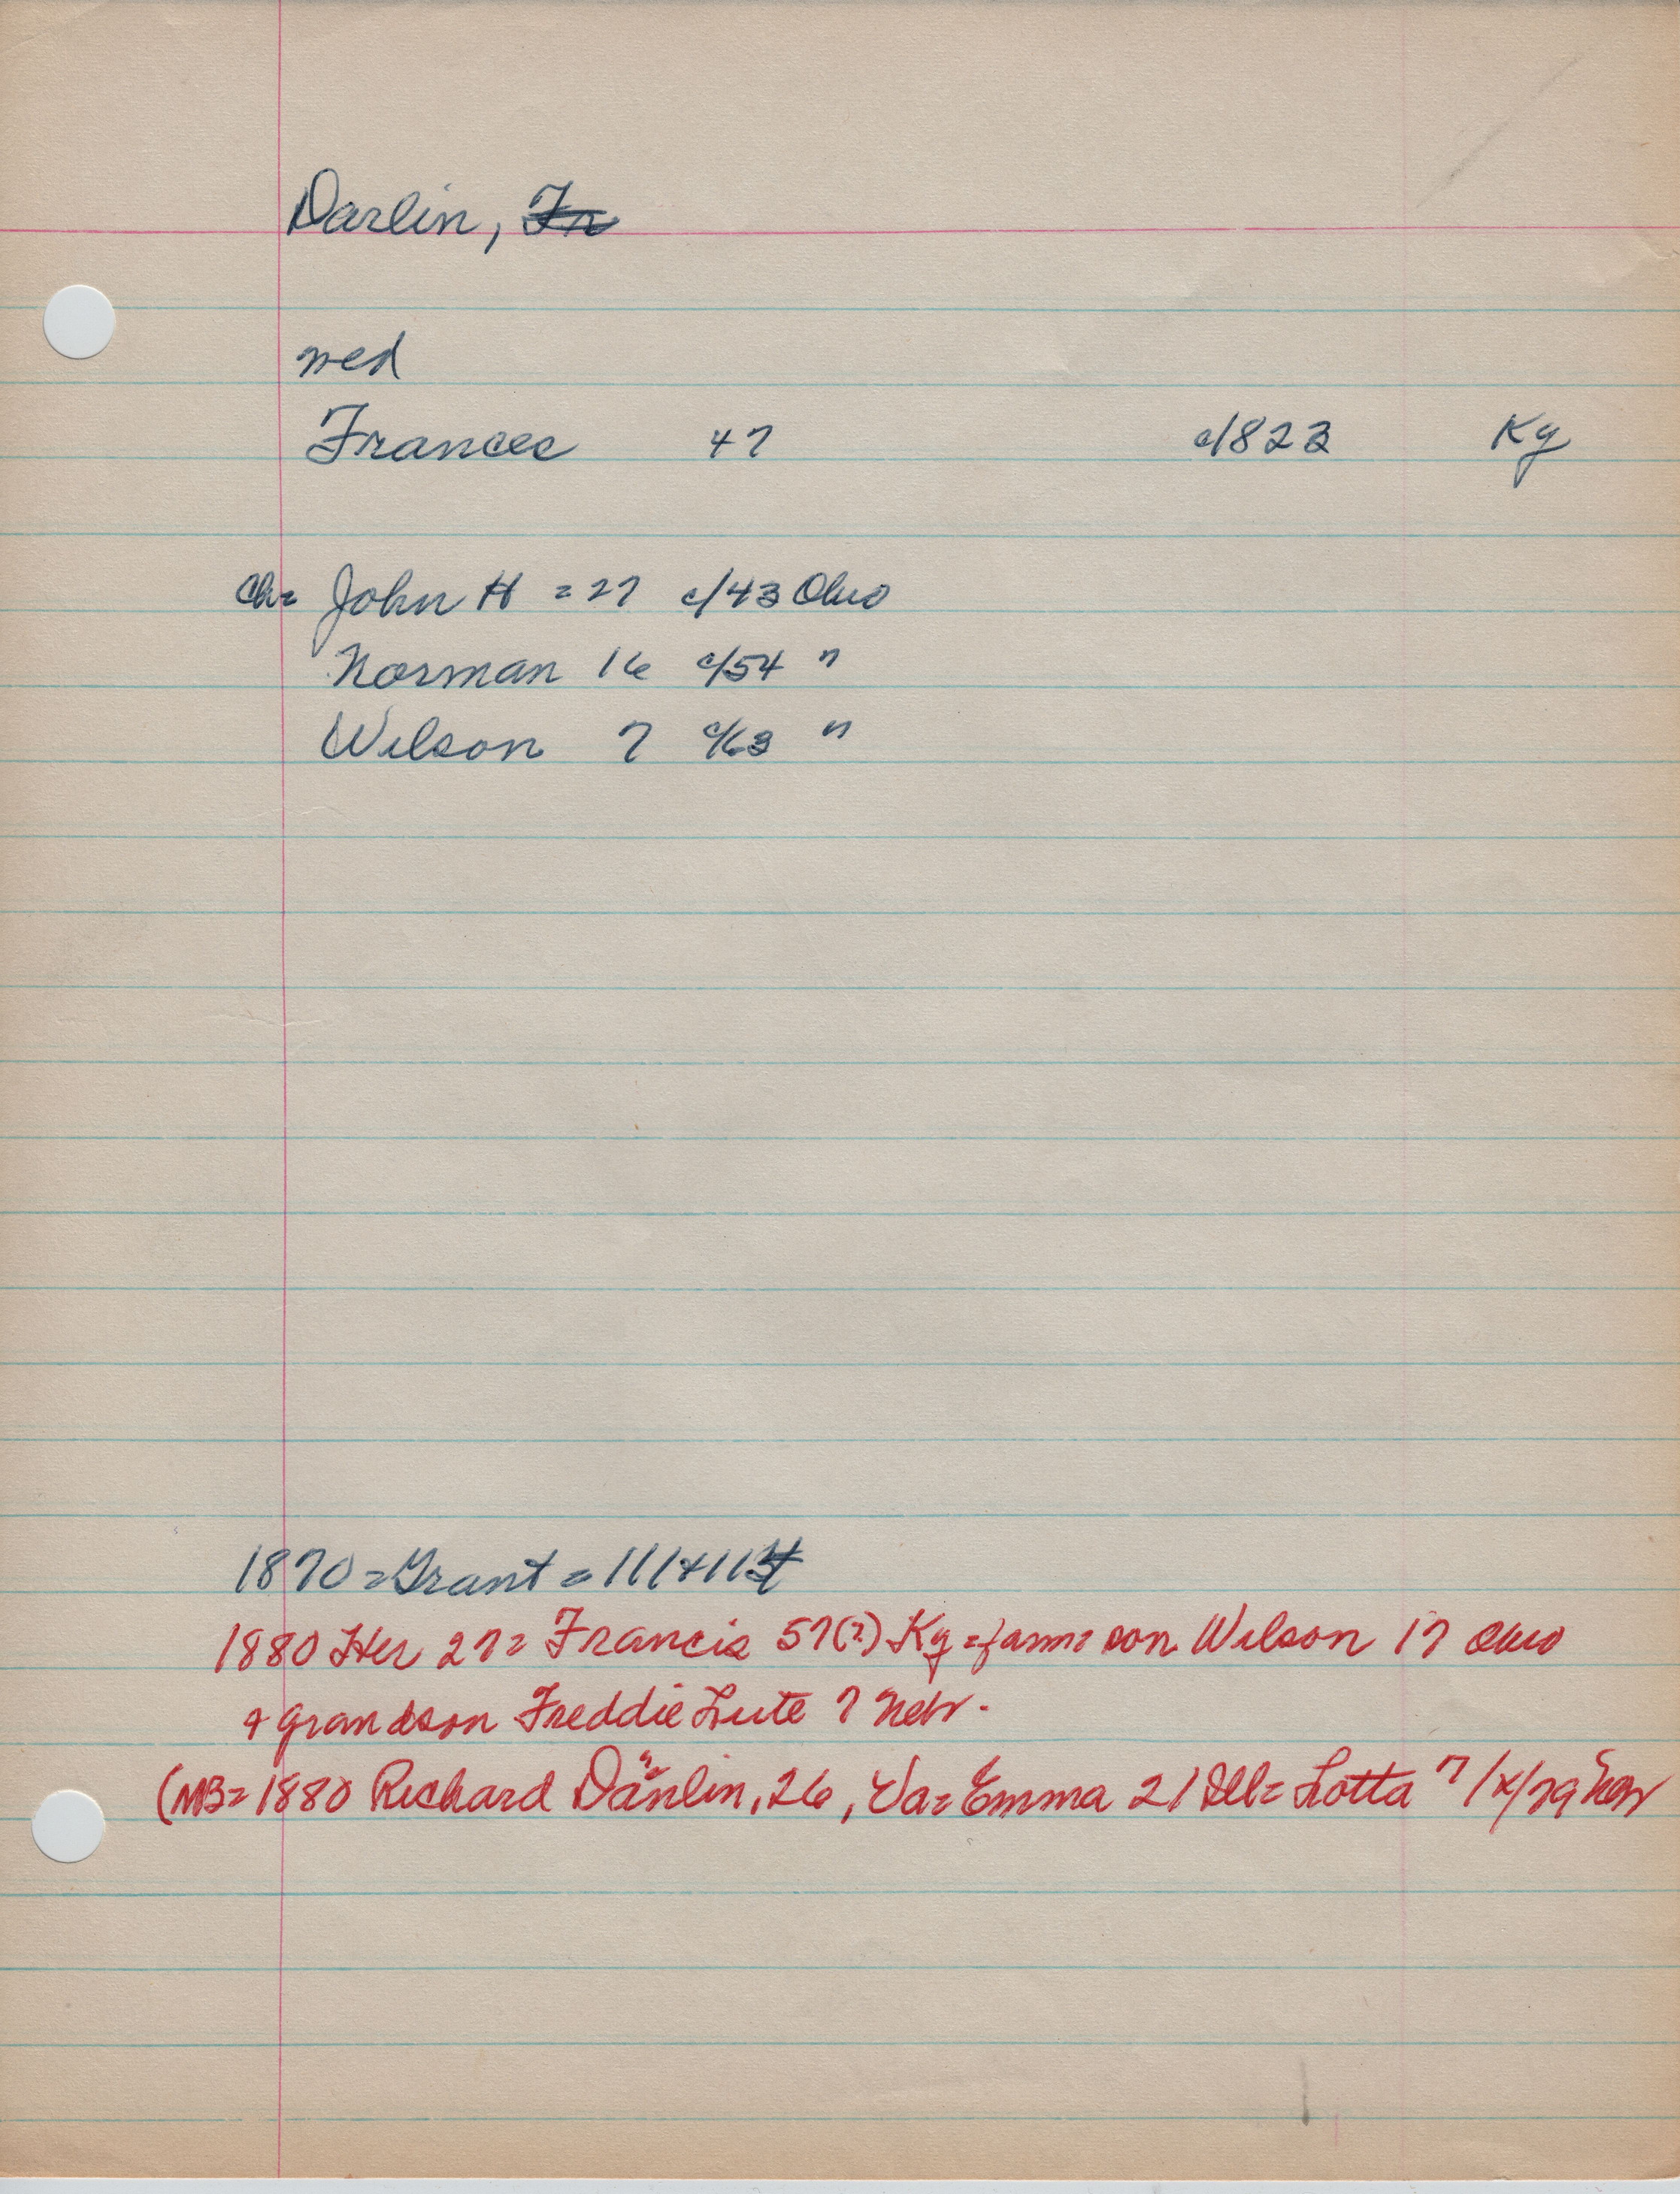 Darlin, Fr
wed
Frances 47 c/1823 Ky
Ch= John H = 27 c/43 Ohio
Norman 16 c/54 "
Wilson 7 c/63 "
1870 = Grant = 111+113
1880 Her 27= Francis 57(?) Ky = farm= son Wilson 17 Ohio
+ grandson Freddie Lute 7 Nebr.
(MB= 1880 Richard Darlin, 26, Va= Emma 21 Ill= Lotta 7/x/79 Nebr